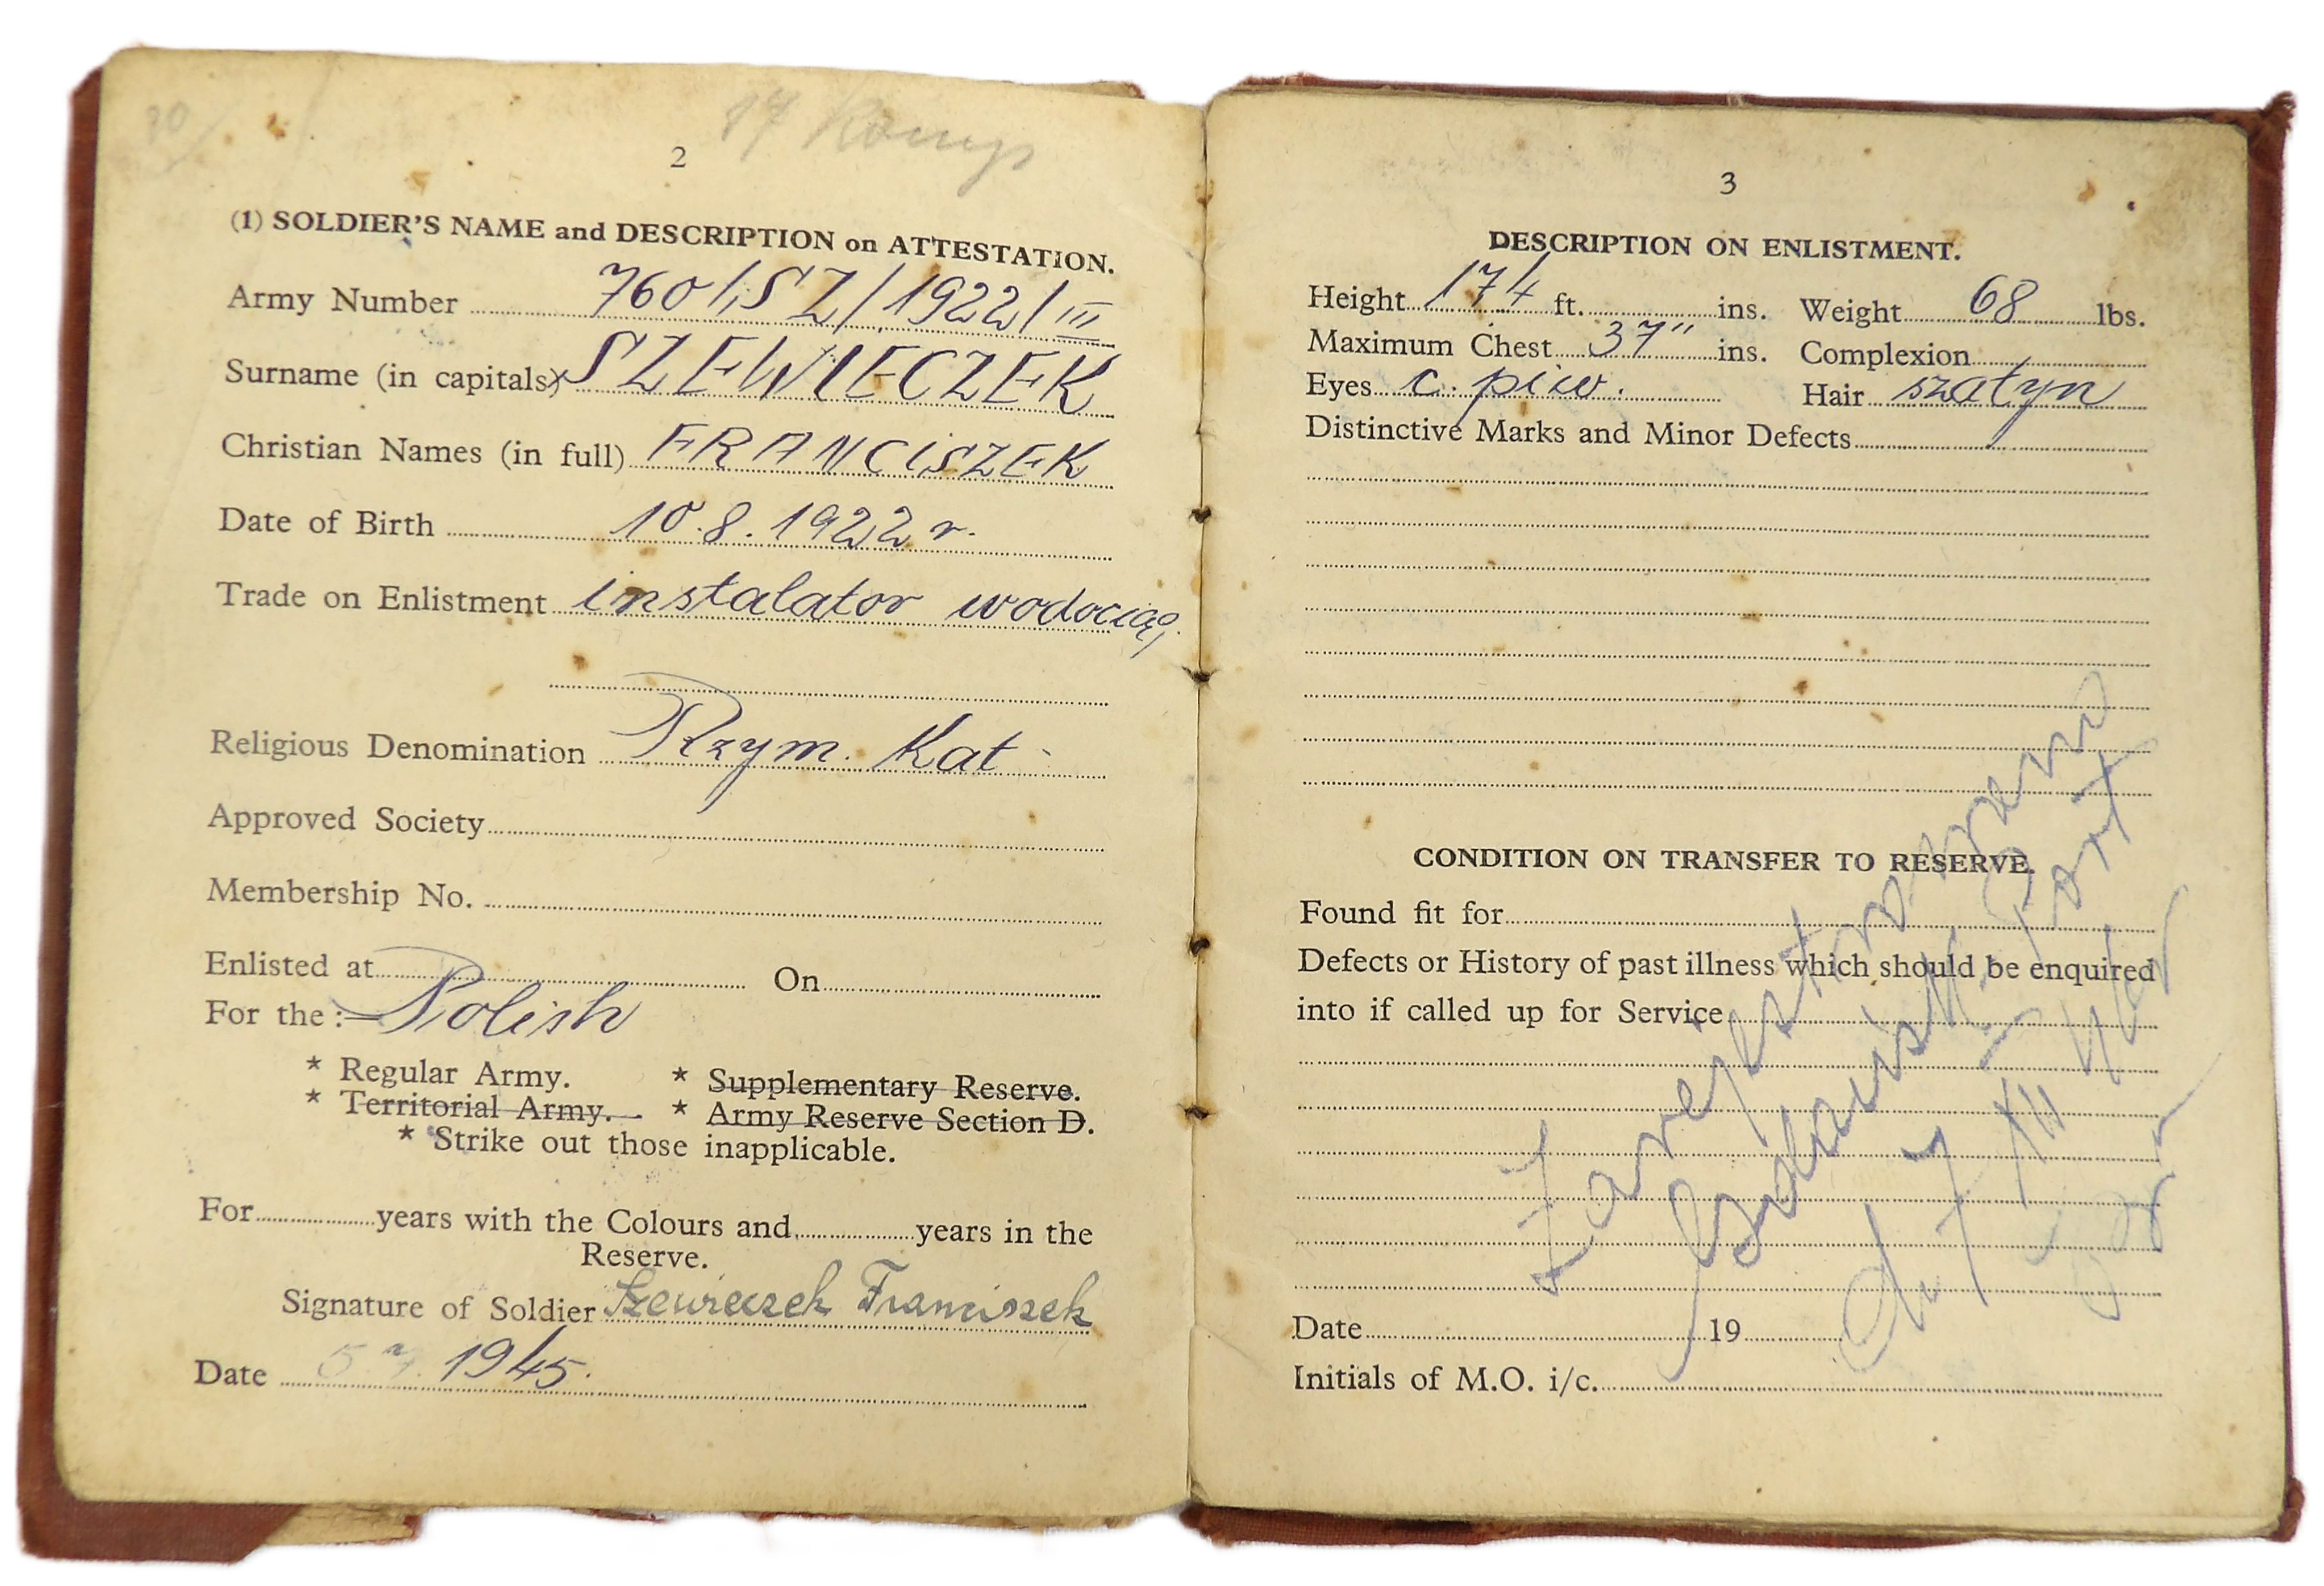 20/
2
17 Komp
(1) SOLDIER'S NAME and DESCRIPTION on ATTESTATION.
Army Number 760/SZ/1922/III
Surname (in capitals) SZEWIECZEK
Christian Names (in full) FRANCISZEK
Date of Birth 10.8.1922 r.
Trade on Enlistment instalator wodociąg.
Religious Denomination Rzym. Kat.
Approved Society
Membership No.
Enlisted at On
For the :— Polish
* Regular Army. * Supplementary Reserve.
* Territorial Army. * Army Reserve Section D.
* Strike out those inapplicable.
For years with the Colours and years in the
Reserve.
Signature of Soldier Szewieczek Franciszek
Date 5 7. 1945.
3
DESCRIPTION ON ENLISTMENT.
Height 174 ft. ins. Weight 68 lbs.
Maximum Chest 37" ins. Complexion
Eyes c. piw. Hair szatyn
Distinctive Marks and Minor Defects
CONDITION ON TRANSFER TO RESERVE.
Found fit for
Defects or History of past illness which should be enquired
into if called up for Service
Date 19
Initials of M.O. i/c.
Zarejestrowany
Gdańsk Port